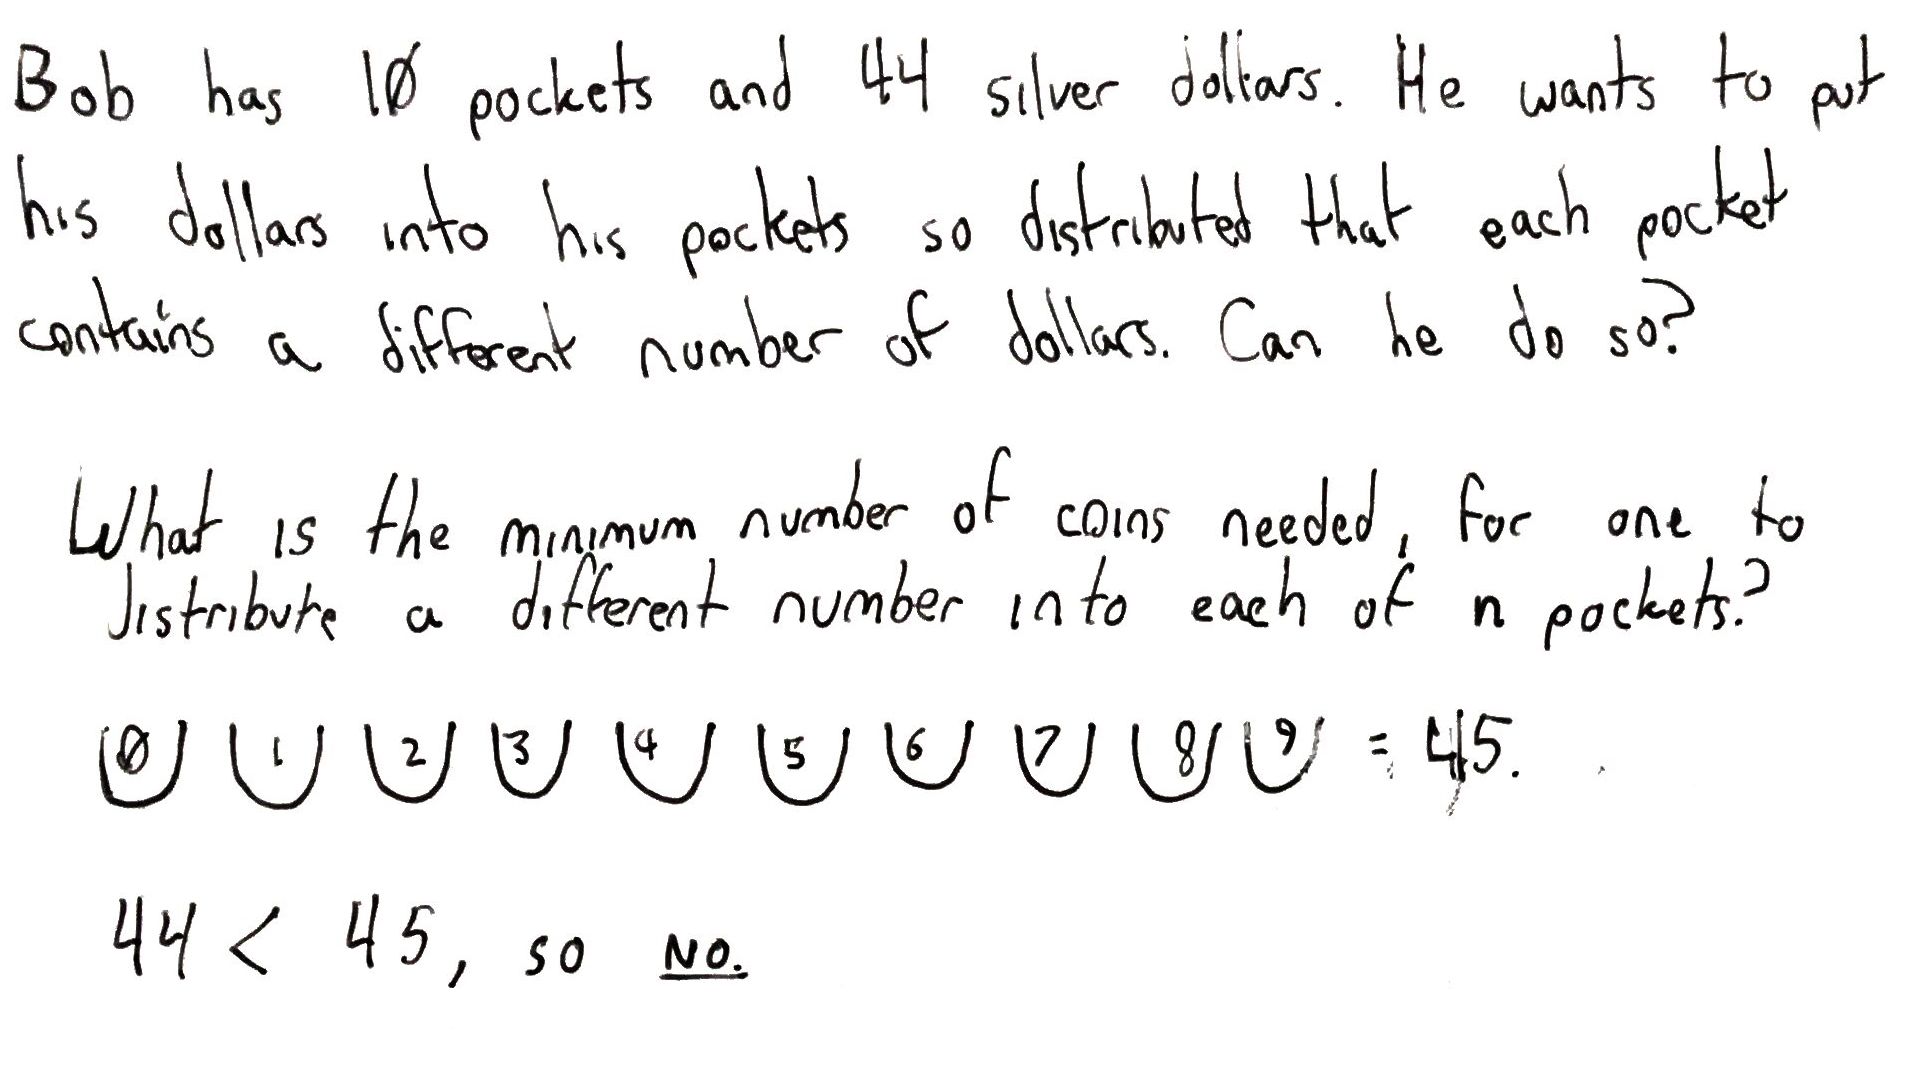 Bob has 10 pockets and 44 silver dollars. He wants to put
his dollars into his pockets so distributed that each pocket
contains a different number of dollars. Can he do so?
What is the minimum number of coins needed, for one to
distribute a different number into each of n pockets?
0 1 2 3 4 5 6 7 8 9 = 45.
44 < 45, so NO.